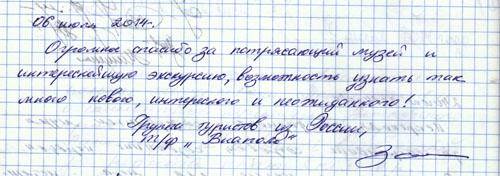 06 июля 2014г.
Огромное спасибо за потрясающий музей и
интереснейшую экскурсию, возможность узнать так
много нового, интересного и неожиданного!
Группа туристов из России,
т/ф „Виаполь“